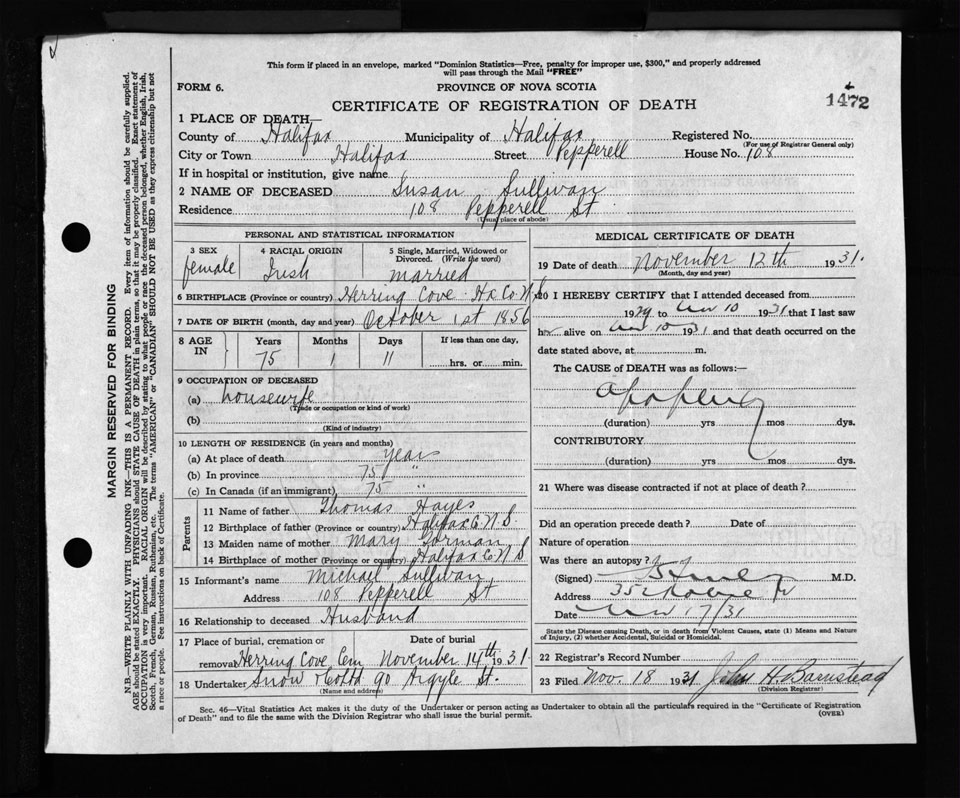 This form if placed in an envelope, marked "Dominion Statistics—Free, penalty for improper use, $300," and properly addressed
will pass through the Mail "FREE"
FORM 6.
PROVINCE OF NOVA SCOTIA
CERTIFICATE OF REGISTRATION OF DEATH
1472
1 PLACE OF DEATH—
County of Halifax Municipality of Halifax Registered No.
(For use of Registrar General only)
City or Town Halifax Street Pepperell House No. 108
If in hospital or institution, give name
2 NAME OF DECEASED Susan Sullivan
Residence 108 Pepperell St
(Usual place of abode)
PERSONAL AND STATISTICAL INFORMATION
3 SEX 4 RACIAL ORIGIN 5 Single, Married, Widowed or
Divorced. (Write the word)
female Irish married
6 BIRTHPLACE (Province or country) Herring Cove Hx Co N.S
7 DATE OF BIRTH (month, day and year) October 1st 1856
8 AGE IN Years Months Days If less than one day,
75 1 11 hrs. or min.
9 OCCUPATION OF DECEASED
(a) housewife
(Trade or occupation or kind of work)
(b)
(Kind of industry)
10 LENGTH OF RESIDENCE (in years and months)
(a) At place of death years
(b) In province 75 "
(c) In Canada (if an immigrant) 75 "
Parents
11 Name of father Thomas Hayes
12 Birthplace of father (Province or country) Halifax Co N.S.
13 Maiden name of mother Mary Gorman
14 Birthplace of mother (Province or country) Halifax Co N S
15 Informant's name Michael Sullivan
Address 108 Pepperell St
16 Relationship to deceased Husband
17 Place of burial, cremation or Date of burial
removal Herring Cove Cem November 14th 1931
18 Undertaker Snow & Co Ltd 90 Argyle St.
(Name and address)
MEDICAL CERTIFICATE OF DEATH
19 Date of death November 12th 1931.
(Month, day and year)
20 I HEREBY CERTIFY that I attended deceased from
1929 to Nov 10 1931 that I last saw
her alive on Nov 10 1931 and that death occurred on the
date stated above, at m.
The CAUSE of DEATH was as follows:—
Apoplexy
(duration) yrs mos dys.
CONTRIBUTORY
(duration) yrs mos dys.
21 Where was disease contracted if not at place of death?
Did an operation precede death? Date of
Nature of operation
Was there an autopsy?
(Signed) M.D.
Address 35
Date Nov 17/31
State the Disease causing Death, or in death from Violent Causes, state (1) Means and Nature
of Injury, (2) whether Accidental, Suicidal or Homicidal.
22 Registrar's Record Number
23 Filed Nov. 18 1931 John H Barnstead
(Division Registrar)
Sec. 46—Vital Statistics Act makes it the duty of the Undertaker or person acting as Undertaker to obtain all the particulars required in the "Certificate of Registration
of Death" and to file the same with the Division Registrar who shall issue the burial permit.
(OVER)
MARGIN RESERVED FOR BINDING
N.B.—WRITE PLAINLY WITH UNFADING INK—THIS IS A PERMANENT RECORD. Every item of information should be carefully supplied.
AGE should be stated EXACTLY. PHYSICIANS should STATE CAUSE OF DEATH in plain terms, so that it may be properly classified. Exact statement of
OCCUPATION is very important. RACIAL ORIGIN will be described by stating to what people or race the deceased person belonged, whether English, Irish,
Scotch, French, German, Russian, Ruthenian, etc. The terms "AMERICAN" or "CANADIAN" SHOULD NOT BE USED as they express citizenship but not
a race or people. See instructions on back of Certificate.